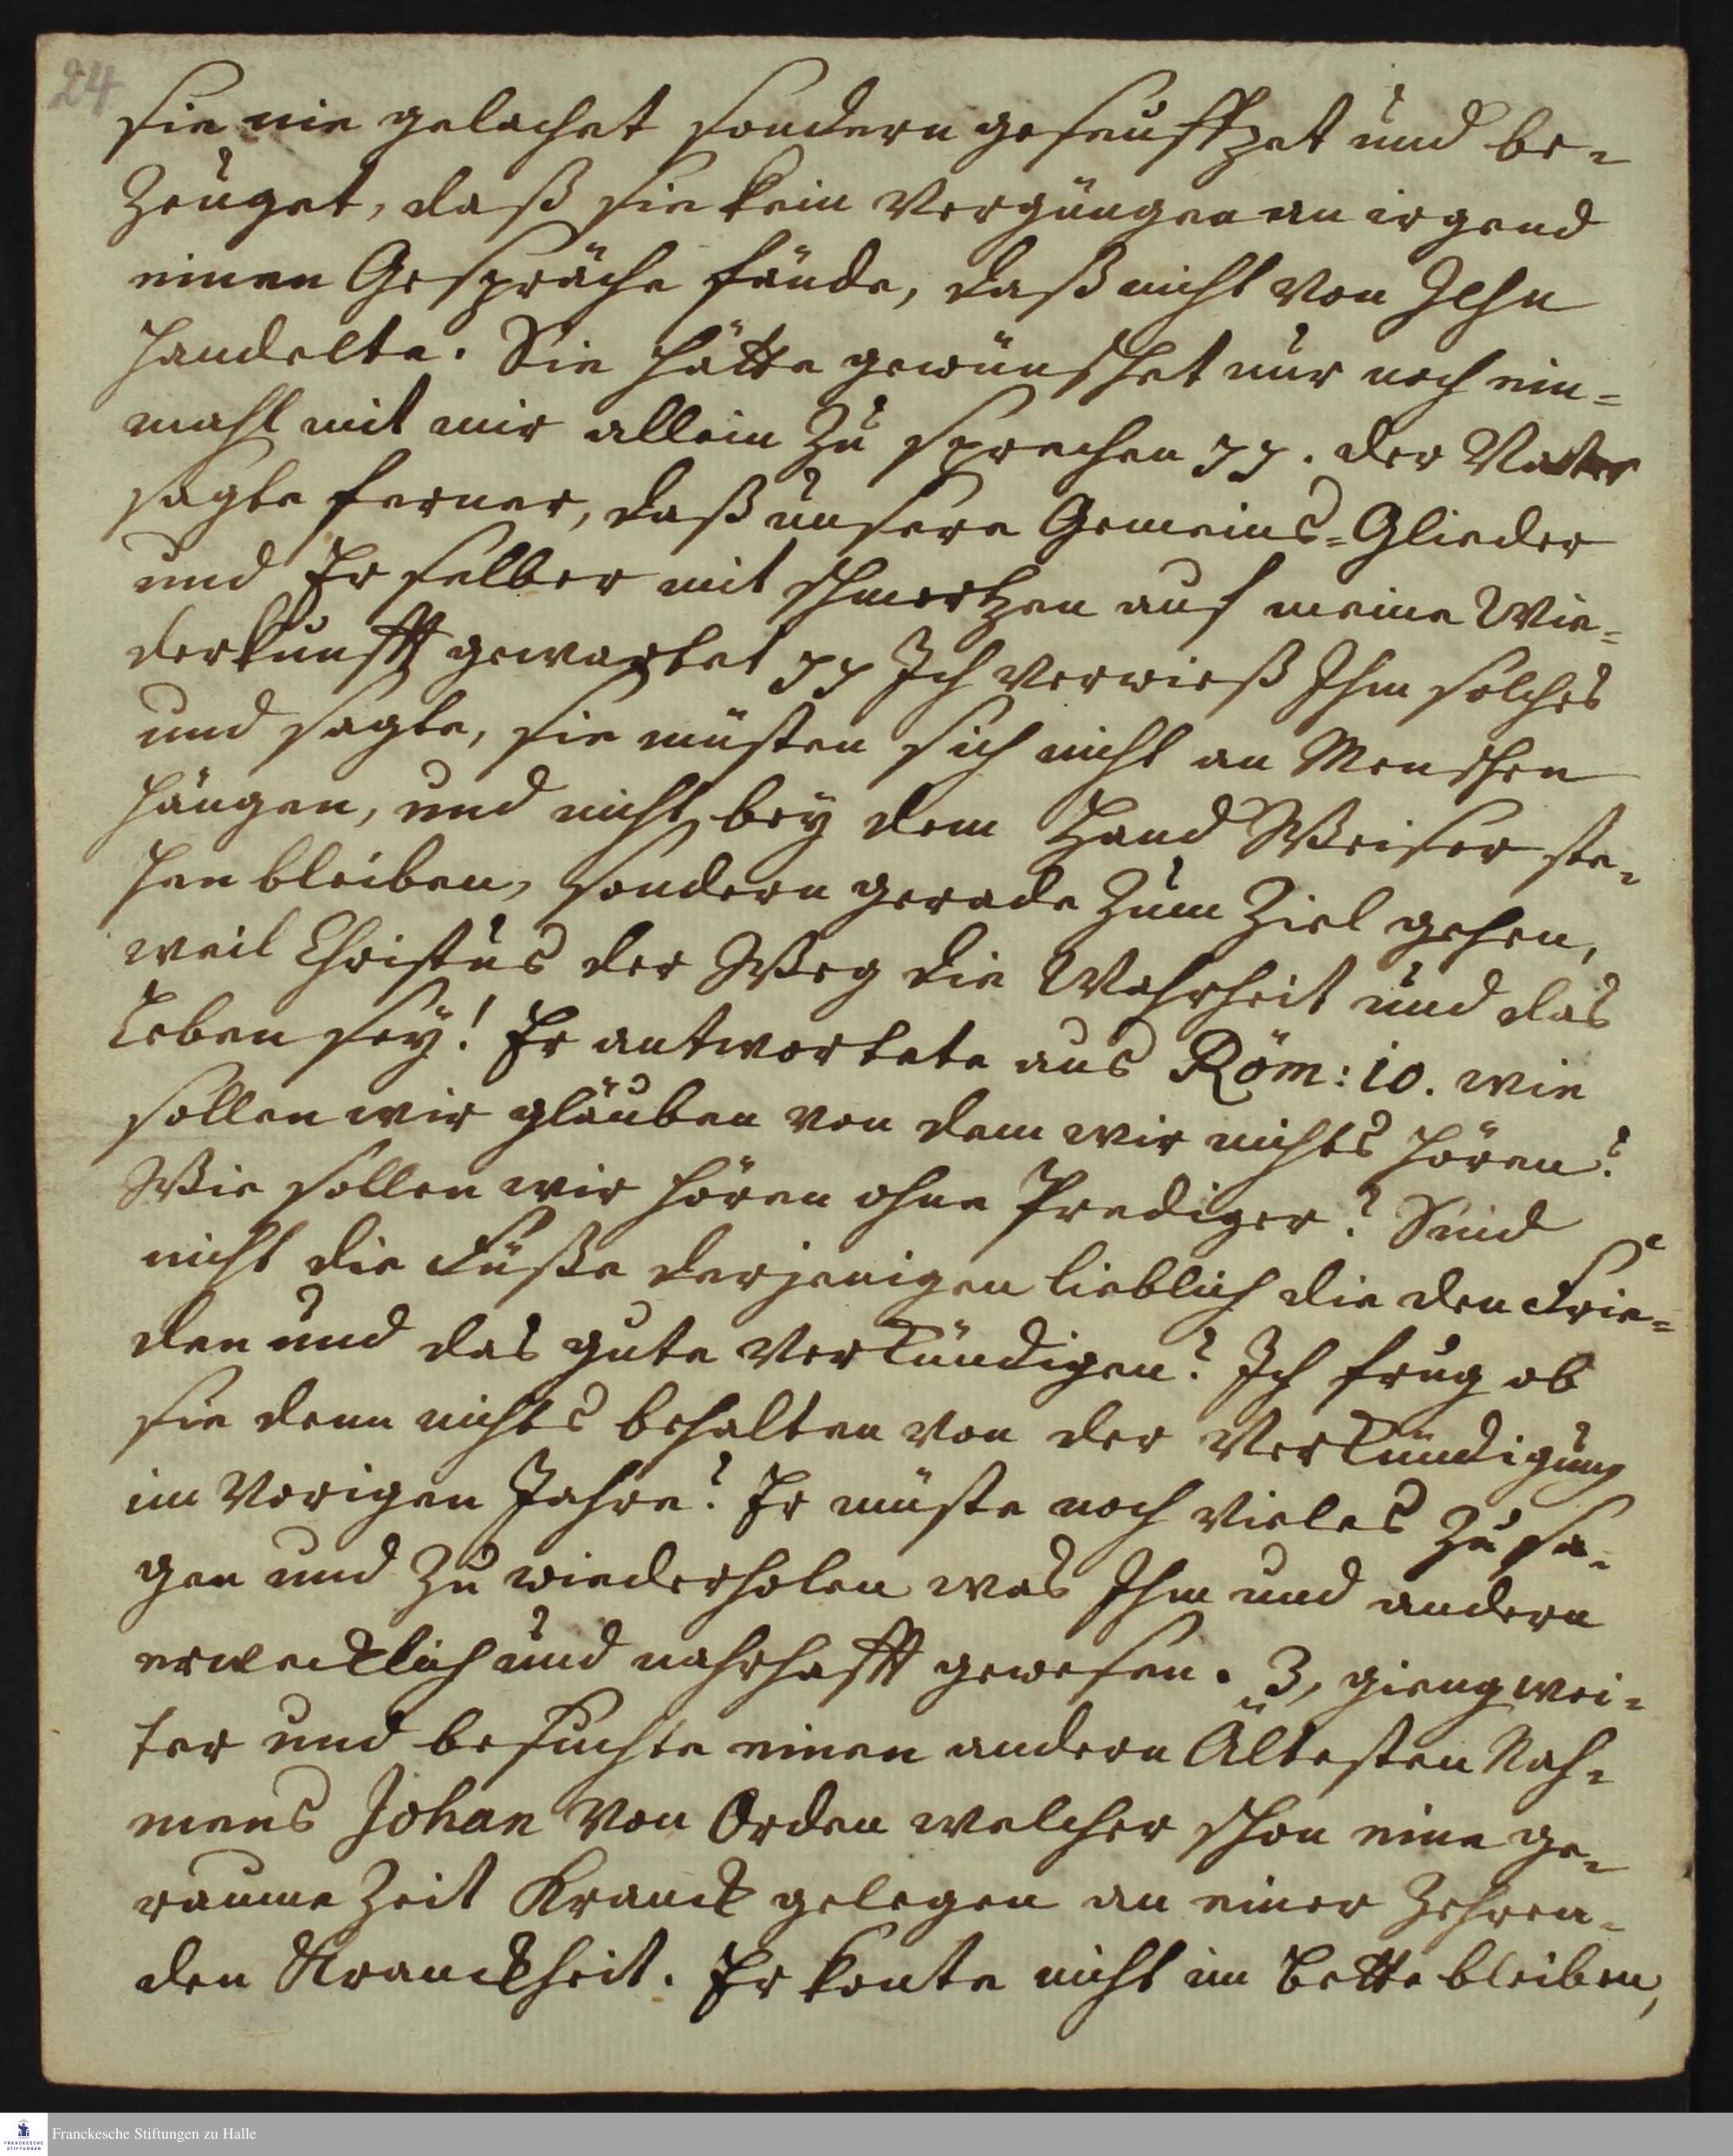 24
sie nie gelachet sondern geseuffzet und be-
zeuget, daß sie kein Vergnügen an irgend
einen Gespräche fände, daß nicht von Jesu
handelte. Sie hätte gewünschet nur noch ein=
mahl mit mir allein zu sprechen pp. der Vater
sagte ferner, daß unsere Gemeins=Glieder
und Er selber mit schmertzen auf meine Wie=
derkunfft gewartet pp Ich verwieß Ihm solches
und sagte, sie müsten sich nicht an Menschen
hängen, und nicht bey dem Hand Weiser ste=
hen bleiben, sondern gerade zum Ziel gehen,
weil Christus der Weg die Wahrheit und das
Leben sey! Er antwortete aus Röm: 10. wie
sollen wir gläuben von dem wir nichts hören?
Wie sollen wir hören ohne Prediger? Sind
nicht die Füße derjenigen lieblich die den Frie=
den und das gute Verkündigen? Ich frug ob
sie denn nichts behalten von der Verkündigung
im Vorigen Jahre? Er wuste noch Vieles zu sa=
gen und zu wiederholen was Ihm und andern
erwecklich und nahrhafft gewesen. 3, gieng wei=
ter und besuchte einen andern Ältesten Nah=
mens Johan von Orden welcher schon eine ge=
raume Zeit Kranck gelegen an einer Zehren=
den Kranckheit. Er konte nicht im Bette bleiben,
FRANCKESCHE STIFTUNGEN
Franckesche Stiftungen zu Halle